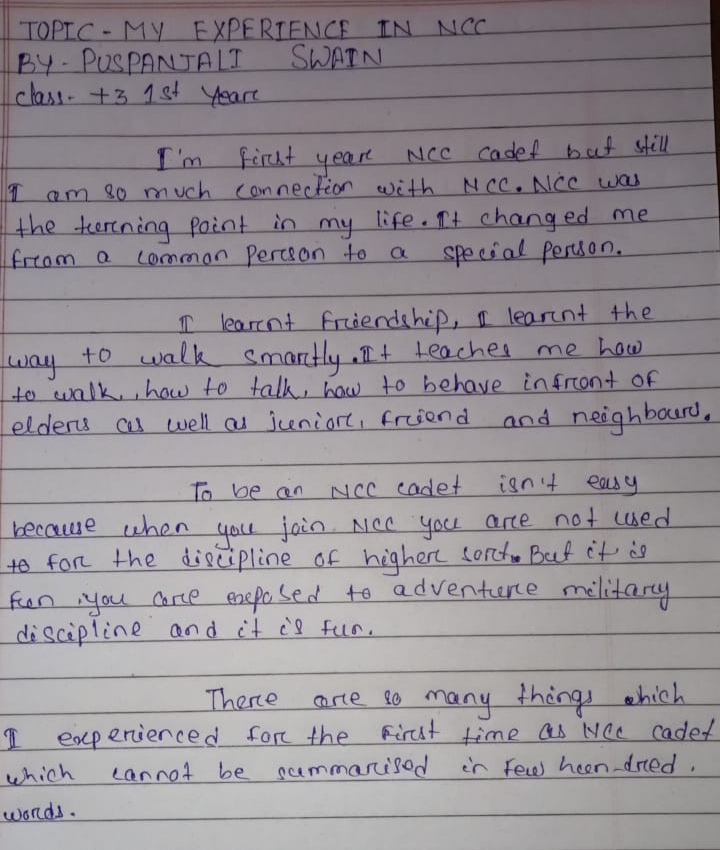 TOPIC - MY EXPERIENCE IN NCC
BY - PUSPANJALI SWAIN
class - +3 1st Year
I'm first year NCC cadet but still
I am so much connection with NCC. NCC was
the turning point in my life. It changed me
from a common person to a special person.
I learnt friendship, I learnt the
way to walk smartly. It teaches me how
to walk, how to talk, how to behave infront of
elders as well as junior, friend and neighbours.
To be an NCC cadet isn't easy
because when you join NCC you are not used
to for the discipline of higher sort. But it is
fun, you are exposed to adventure military
discipline and it is fun.
There are so many things which
I experienced for the first time as NCC cadet
which cannot be summarised in few hun-dred.
words.